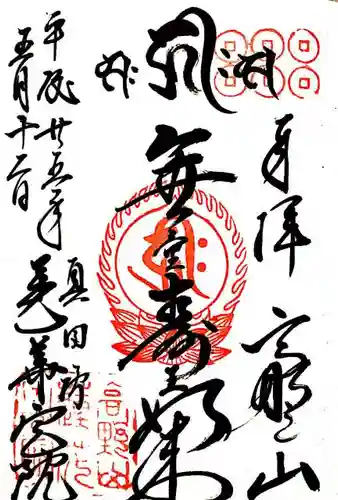 奉拝 高野山
無量壽如来
真田坊
蓮華定院
平成廿五年
五月十二日
高野山